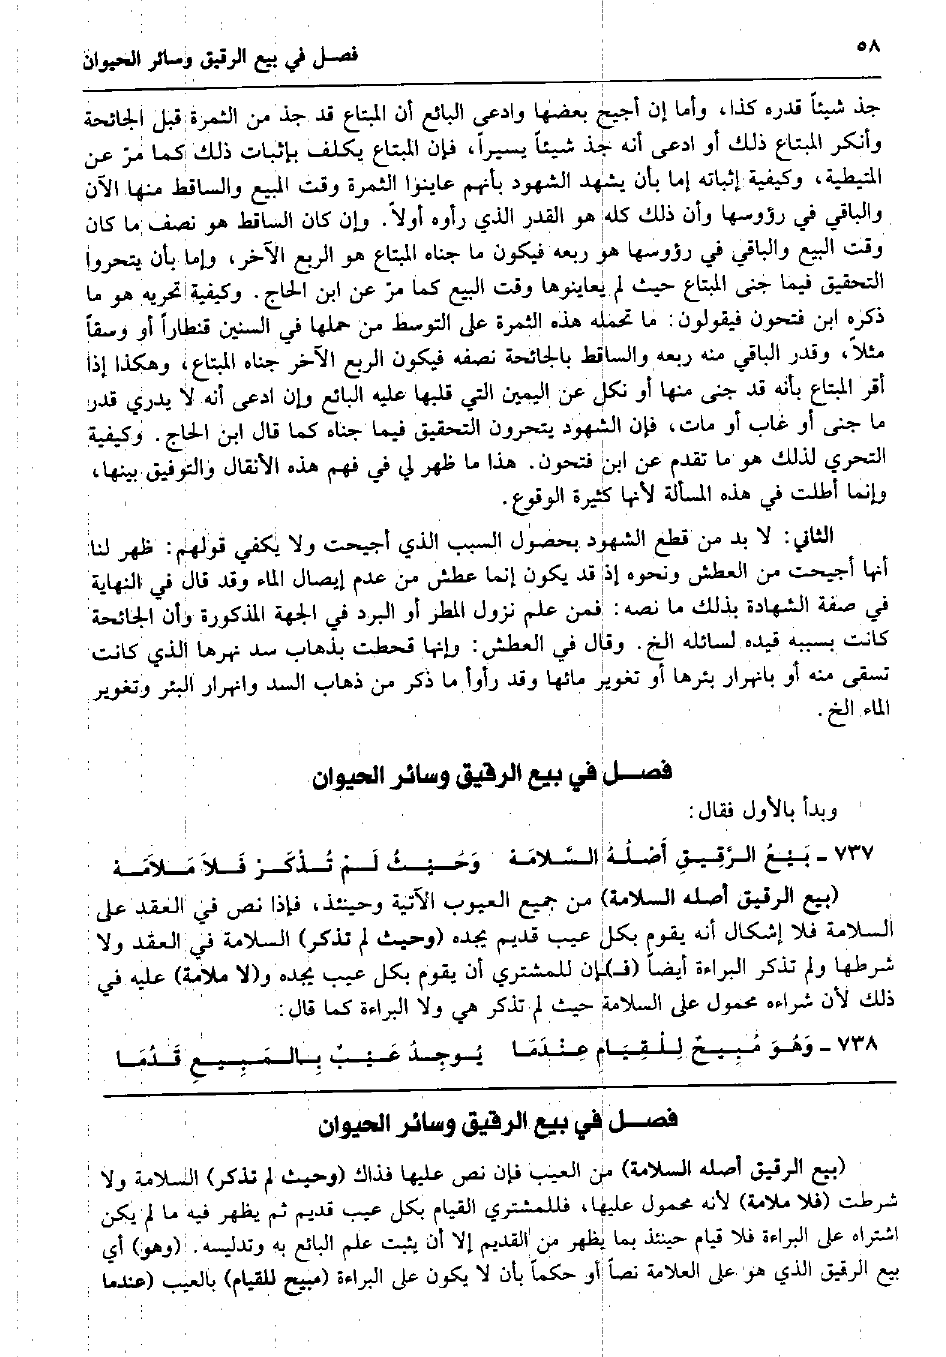 ٥٨
فصل في بيع الرقيق وسائر الحيوان
جذ شيئاً قدره كذا، وأما إن أجيح بعضها وادعى البائع أن المبتاع قد جذ من الثمرة قبل الجائحة
وأنكر المبتاع ذلك أو ادعى أنه جذ شيئاً يسيراً، فإن المبتاع يكلف بإثبات ذلك كما مرّ عن
المتيطية، وكيفية إثباته إما بأن يشهد الشهود بأنهم عاينوا الثمرة وقت المبيع والساقط منها الآن
والباقي في رؤوسها وأن ذلك كله هو القدر الذي رأوه أولاً. وإن كان الساقط هو نصف ما كان
وقت البيع والباقي في رؤوسها هو ربعه فيكون ما جناه المبتاع هو الربع الآخر، وإما بأن يتحروا
التحقيق فيما جنى المبتاع حيث لم يعاينوها وقت البيع كما مرّ عن ابن الحاج. وكيفية تحريه هو ما
ذكره ابن فتحون فيقولون: ما تحمله هذه الثمرة على التوسط من حملها في السنين قنطاراً أو وسقاً
مثلاً، وقدر الباقي منه ربعه والساقط بالجائحة نصفه فيكون الربع الآخر جناه المبتاع، وهكذا إذا
أقر المبتاع بأنه قد جنى منها أو نكل عن اليمين التي قلبها عليه البائع وإن ادعى أنه لا يدري قدر
ما جنى أو غاب أو مات، فإن الشهود يتحرون التحقيق فيما جناه كما قال ابن الحاج. وكيفية
التحري لذلك هو ما تقدم عن ابن فتحون. هذا ما ظهر لي في فهم هذه الأنقال والتوفيق بينها،
وإنما أطلت في هذه المسألة لأنها كثيرة الوقوع.
الثاني: لا بد من قطع الشهود بحصول السبب الذي أجيحت ولا يكفي قولهم: ظهر لنا
أنها أجيحت من العطش ونحوه إذ قد يكون إنما عطش من عدم إيصال الماء وقد قال في النهاية
في صفة الشهادة بذلك ما نصه: فمن علم نزول المطر أو البرد في الجهة المذكورة وأن الجائحة
كانت بسببه قيده لسائله الخ. وقال في العطش: وإنها قحطت بذهاب سد نهرها الذي كانت
تسقى منه أو بانهرار بئرها أو تغوير مائها وقد رأوا ما ذكر من ذهاب السد وانهرار البئر وتغوير
الماء الخ.
فصل في بيع الرقيق وسائر الحيوان
وبدأ بالأول فقال:
٧٣٧ - بَيْعُ الرَّقِيقِ أَصْلُهُ السَّلاَمَهْ وَحَيْثُ لَمْ تُذْكَرْ فَلاَ مَلاَمَهْ
(بيع الرقيق أصله السلامة) من جميع العيوب الآتية وحينئذ، فإذا نص في العقد على
السلامة فلا إشكال أنه يقوم بكل عيب قديم يجده (وحيث لم تذكر) السلامة في العقد ولا
شرطها ولم تذكر البراءة أيضاً (فـ)ـإن للمشتري أن يقوم بكل عيب يجده و(لا ملامة) عليه في
ذلك لأن شراءه محمول على السلامة حيث لم تذكر هي ولا البراءة كما قال:
٧٣٨ - وَهْوَ مُبِيحٌ لِلْقِيَامِ عِنْدَمَا يُوجَدُ عَيْبٌ بِالْمَبِيعِ قَدُمَا
فصل في بيع الرقيق وسائر الحيوان
(بيع الرقيق أصله السلامة) من العيب فإن نص عليها فذاك (وحيث لم تذكر) السلامة ولا
شرطت (فلا ملامة) لأنه محمول عليها، فللمشتري القيام بكل عيب قديم ثم يظهر فيه ما لم يكن
اشتراه على البراءة فلا قيام حينئذ بما يظهر من القديم إلا أن يثبت علم البائع به وتدليسه. (وهو) أي
بيع الرقيق الذي هو على العلامة نصاً أو حكماً بأن لا يكون على البراءة (مبيح للقيام) بالعيب (عندما